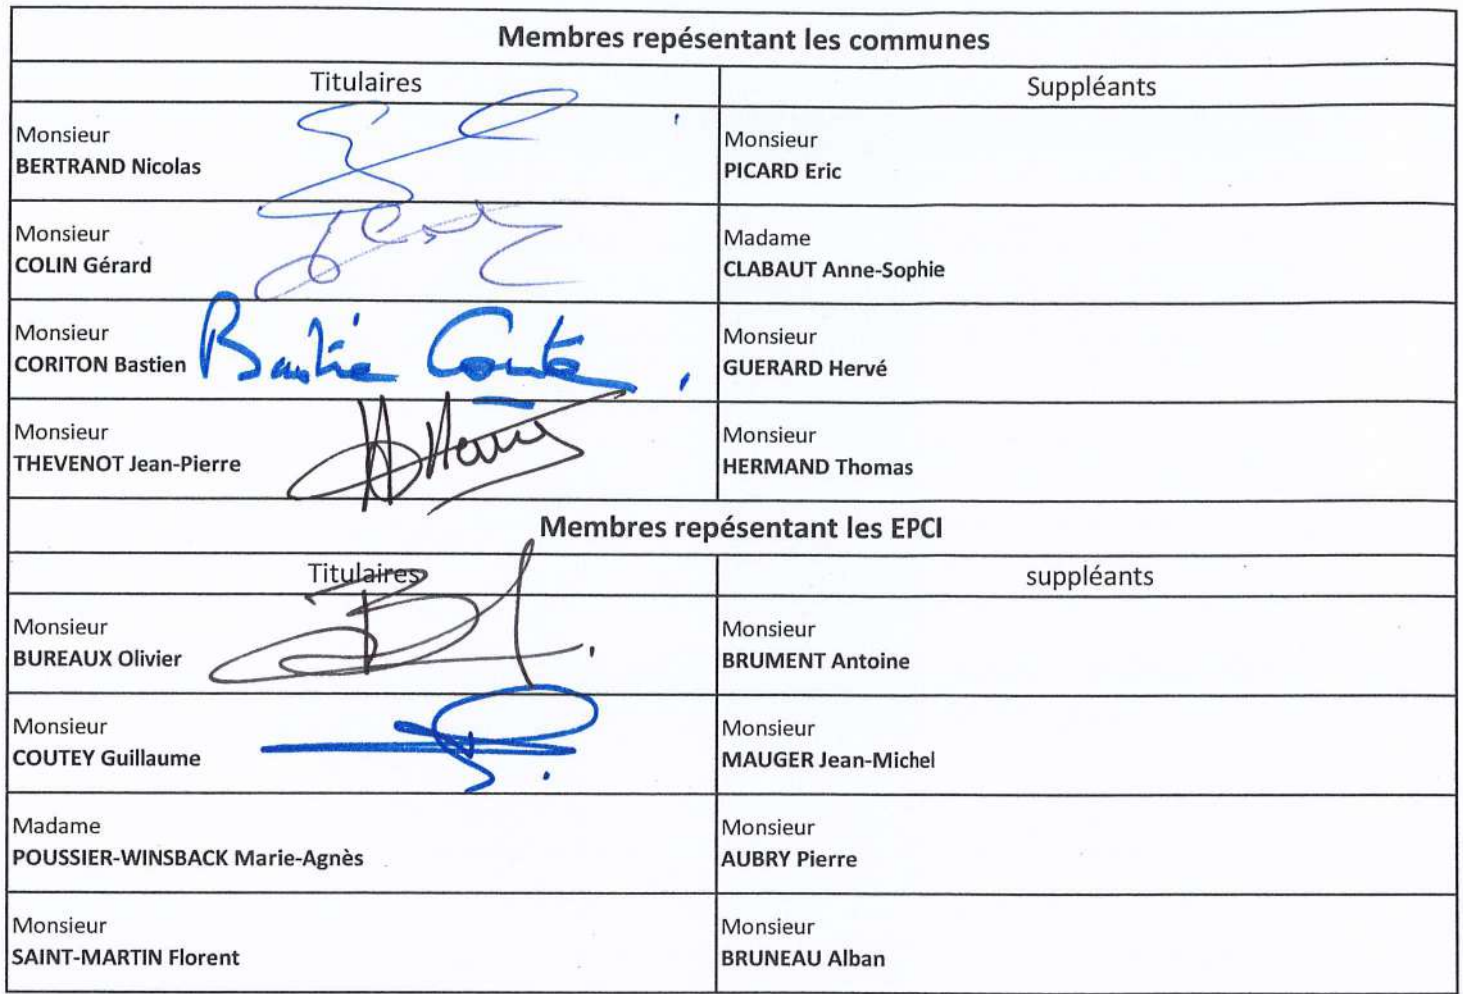 Membres repésentant les communes
Titulaires
Suppléants
Monsieur
BERTRAND Nicolas
Monsieur
PICARD Eric
Monsieur
COLIN Gérard
Madame
CLABAUT Anne-Sophie
Monsieur
CORITON Bastien
Monsieur
GUERARD Hervé
Monsieur
THEVENOT Jean-Pierre
Monsieur
HERMAND Thomas
Membres repésentant les EPCI
Titulaires
suppléants
Monsieur
BUREAUX Olivier
Monsieur
BRUMENT Antoine
Monsieur
COUTEY Guillaume
Monsieur
MAUGER Jean-Michel
Madame
POUSSIER-WINSBACK Marie-Agnès
Monsieur
AUBRY Pierre
Monsieur
SAINT-MARTIN Florent
Monsieur
BRUNEAU Alban